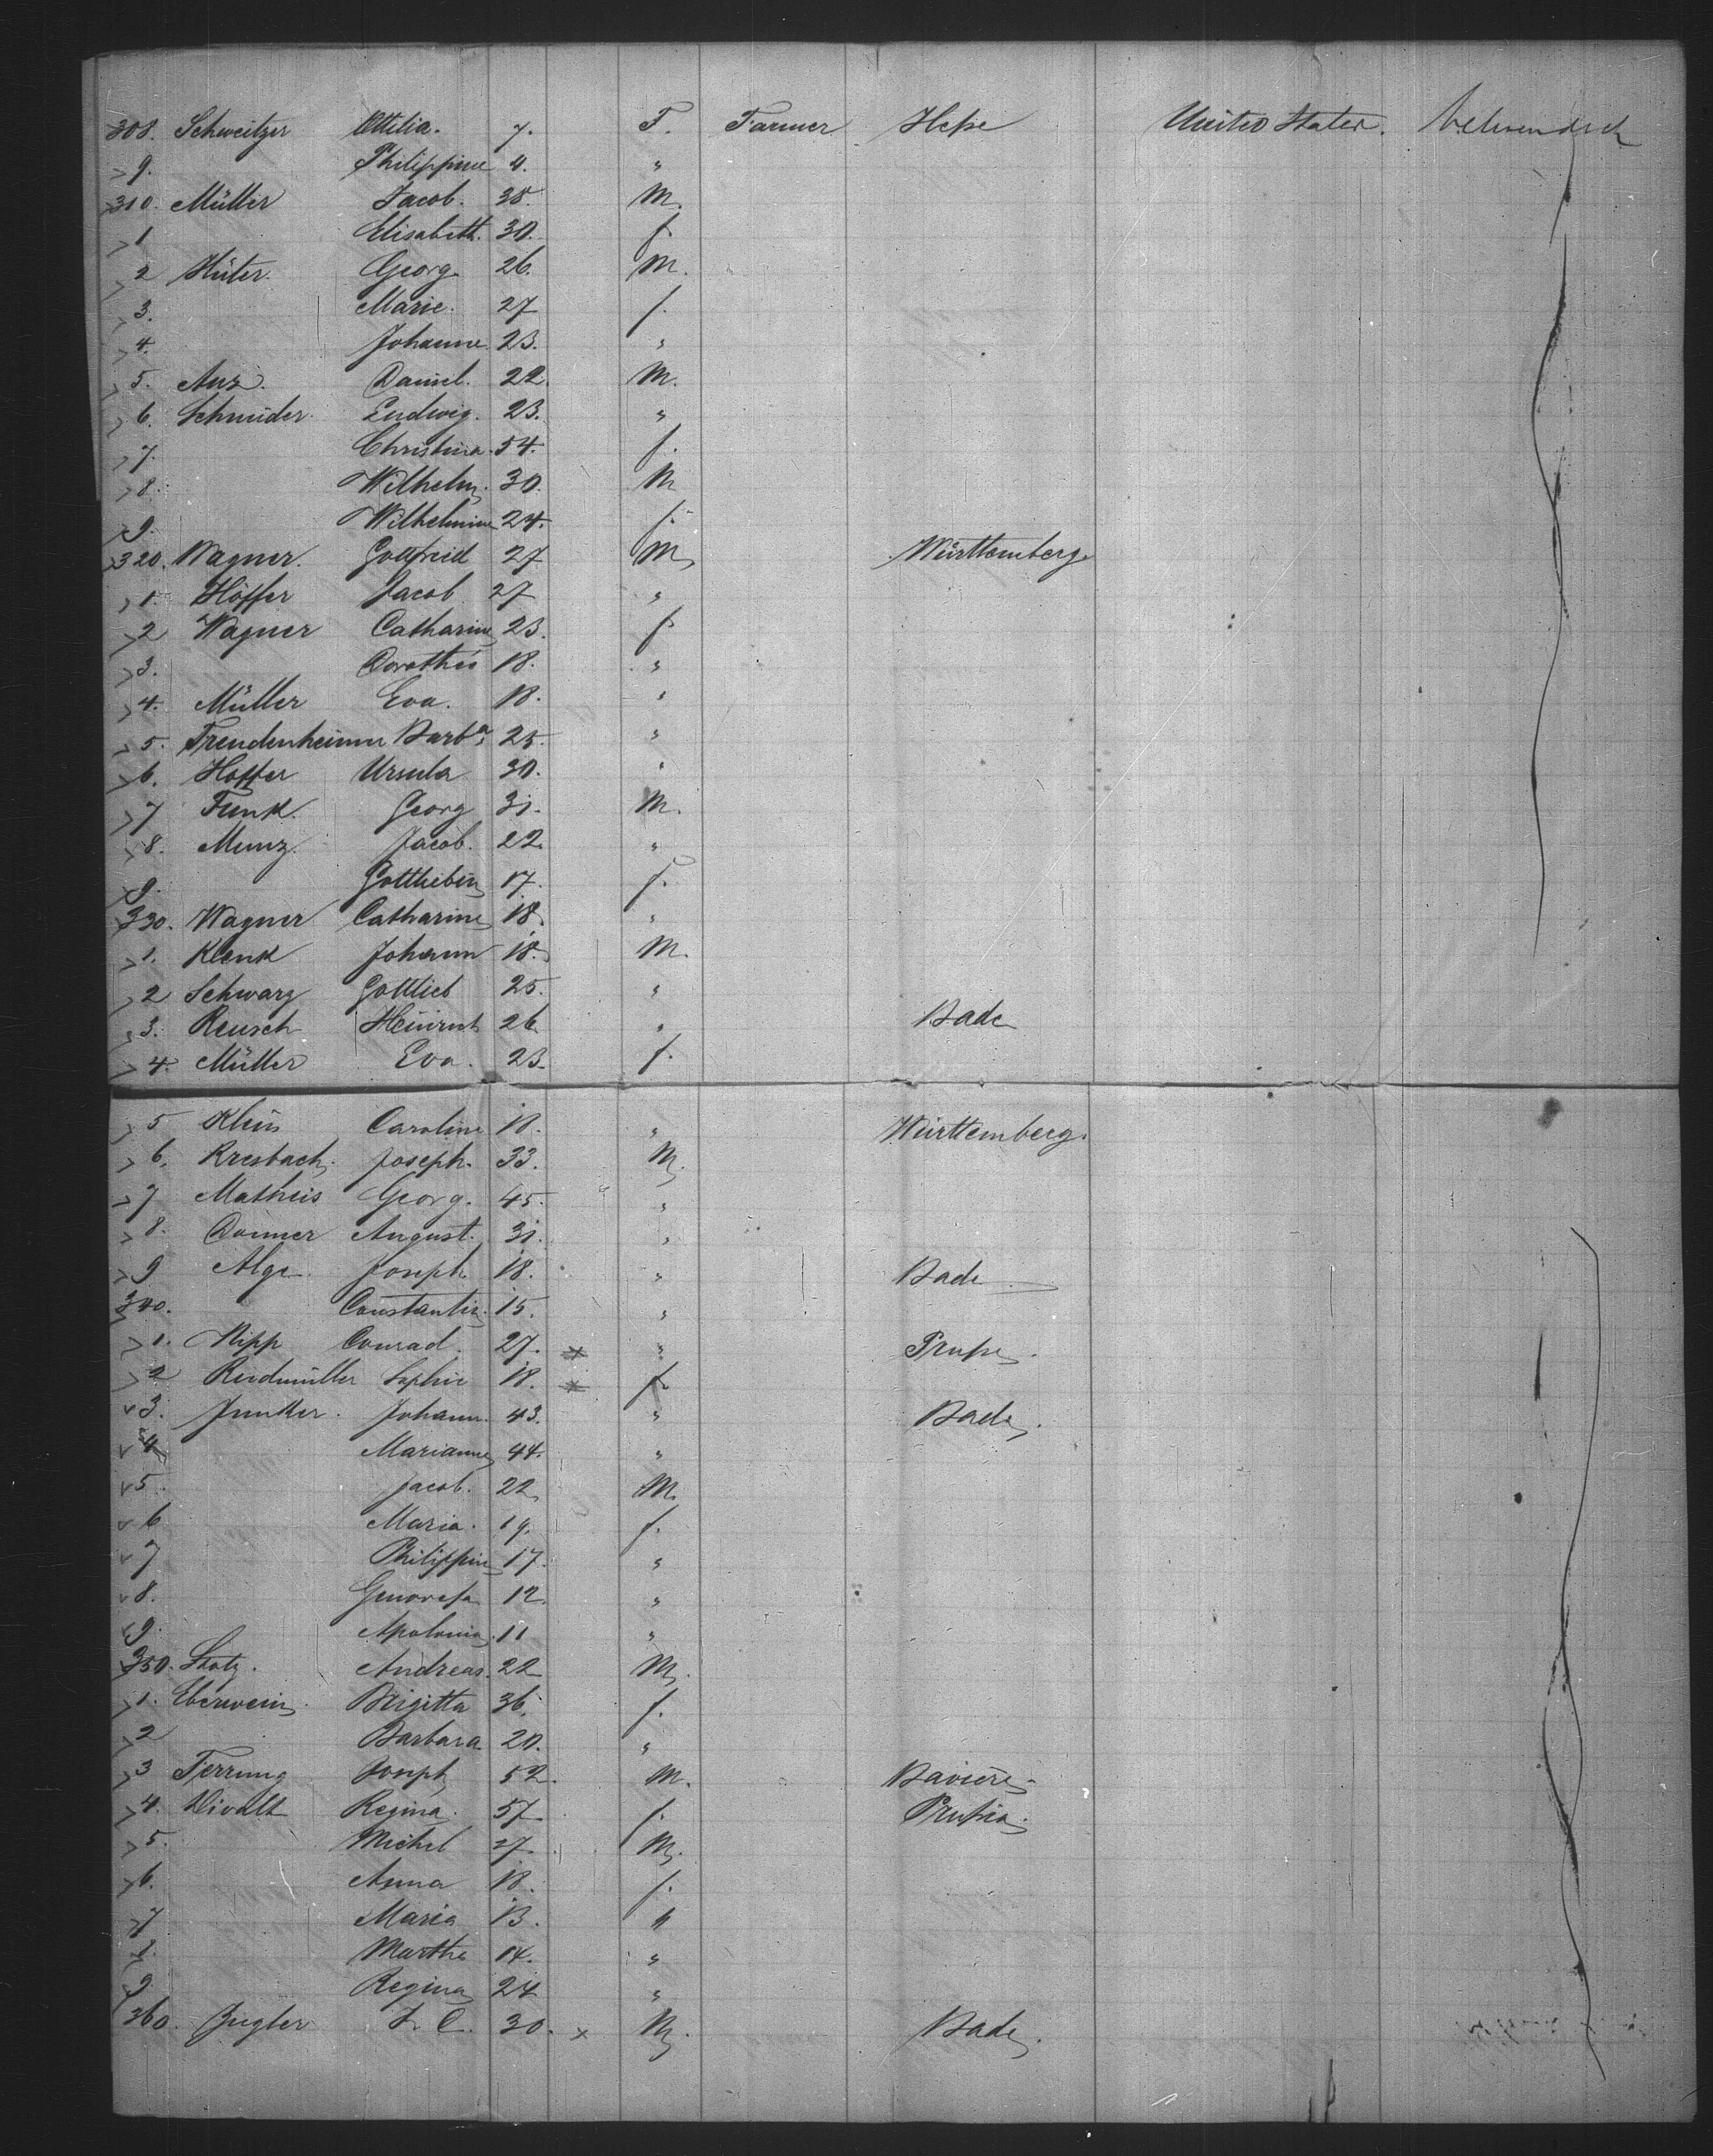 308. Schweitzer Ottilia. 7. F. Farmer Hesse United States.
9. Philippine 4. "
310. Müller Jacob. 38. M.
1 Elisabeth. 30. f.
2 Hüter. Georg. 26. M.
3. Marie. 27 f.
4. Johanne. 23. "
5. Anz. Daniel. 22. M.
6. Schneider. Ludwig. 23. "
7. Christina. 54. f.
8. Wilhelm. 30. M
9. Wilhelmine 24. f.
320. Wagner. Gottfried 27 M Württemberg.
1. Höffer Jacob 27 "
2 Wagner Catharine 23. f.
3. Dorothea 18. "
4. Müller Eva. 18. "
5. Freudenheimer Barba. 25. "
6. Hoffer Ursula 30. "
7 Funk. Georg 31. M.
8. Munz. Jacob. 22. "
9. Gottliebin 17. f.
330. Wagner Catharine 18. "
1. Klenk Johann 18. M.
2 Schwarz Gottlieb 25. "
3. Reusch Heinrich 26 " Bade
4. Müller Eva. 23. f.
5 Klein Caroline 18. " Württemberg.
6. Kresbach. Joseph. 33. M.
7 Matheis Georg. 45. "
8. Donner August. 31. "
9 Alge. Joseph. 18. " Bade
340. Constantin. 15. "
1. Hipp Conrad. 27. " Prusse.
2 Riedmüller Sophie 18. f.
3. Junker. Johann. 43. " Bade.
4 Marianne 44. "
5. Jacob. 22. M.
6 Maria. 19. f.
7 Philippine 17. "
8. Genovefa 12. "
9. Apolonia. 11 "
350. Stotz. Andreas. 22 M.
1. Eberwein. Brigitta 36. f.
2 Barbara 20. "
3 Ferrung Joseph 52. M. Baviere
4. Divalt Regina. 57 f. Prussia.
5. Michel 27 M.
6. Anna 18. f.
7 Maria 13. "
8. Martha 14. "
9. Regina 24 "
360. Ziegler J. C. 30. x M. Bade.